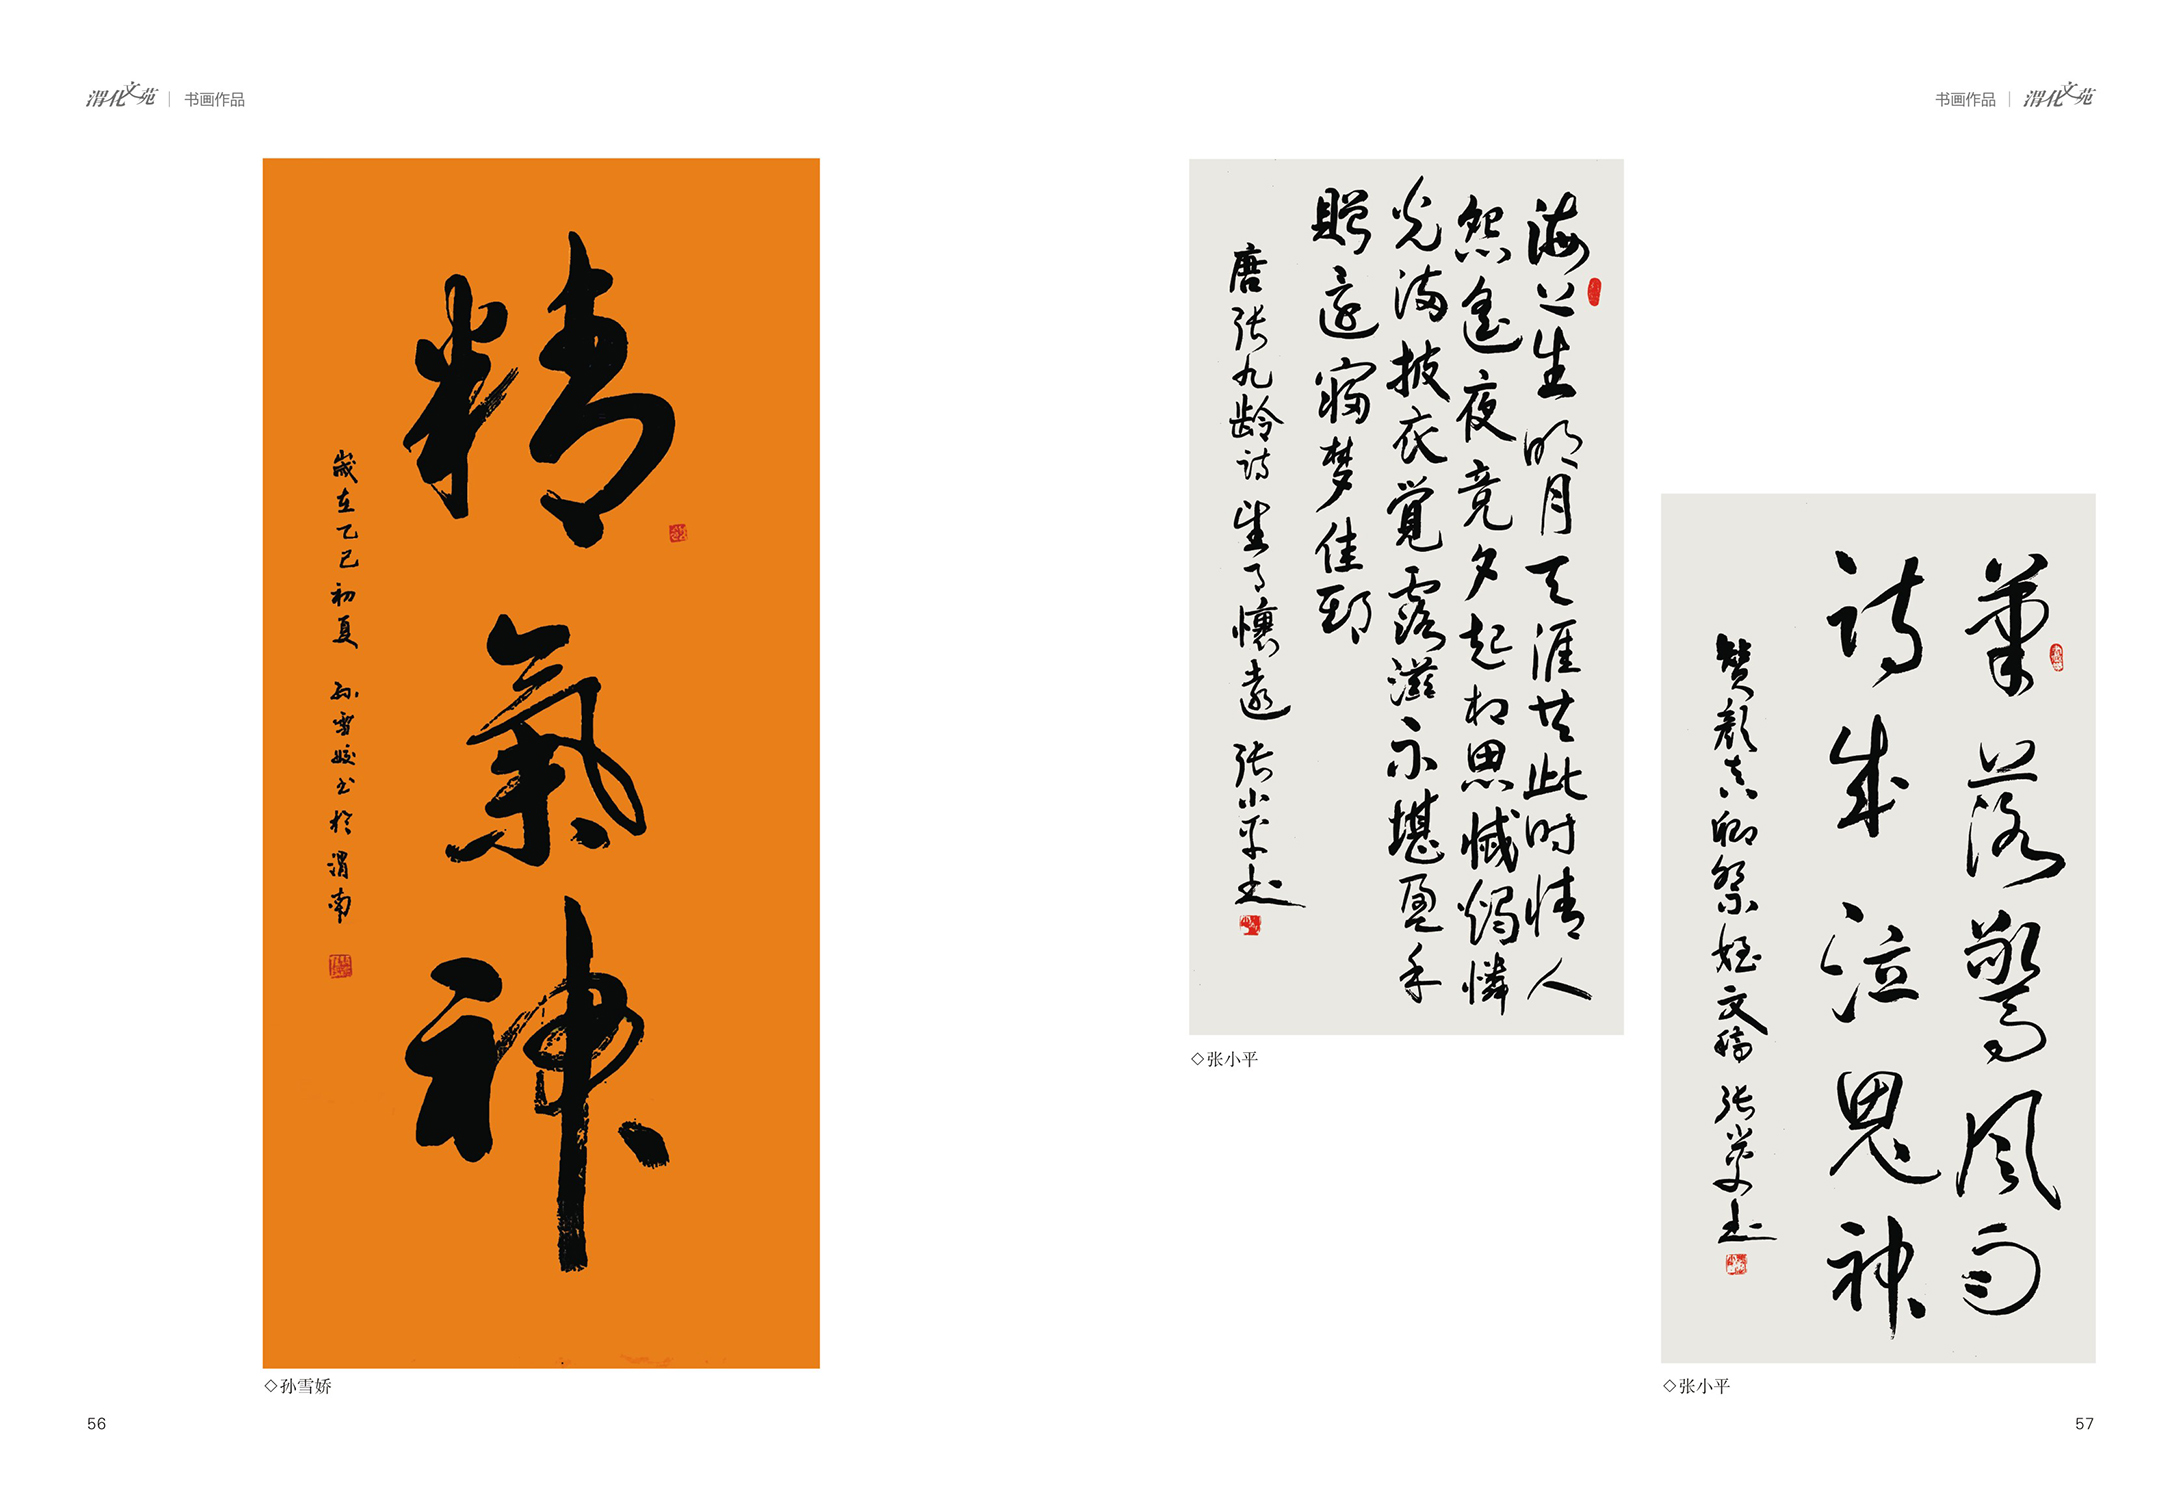 渭化文苑 | 书画作品
精氣神
歲在乙巳初夏 孙雪娇书於渭南
◇孙雪娇
56
书画作品 | 渭化文苑
海上生明月天涯共此时情人
怨遙夜竞夕起相思憾燭憐
光满披衣覺露滋不堪盈手
贈還寢梦佳期
唐张九龄诗望月懷遠 张小平书
◇张小平
筆落驚风雨
诗成泣鬼神
赞颜真卿祭侄文稿 张小平书
◇张小平
57